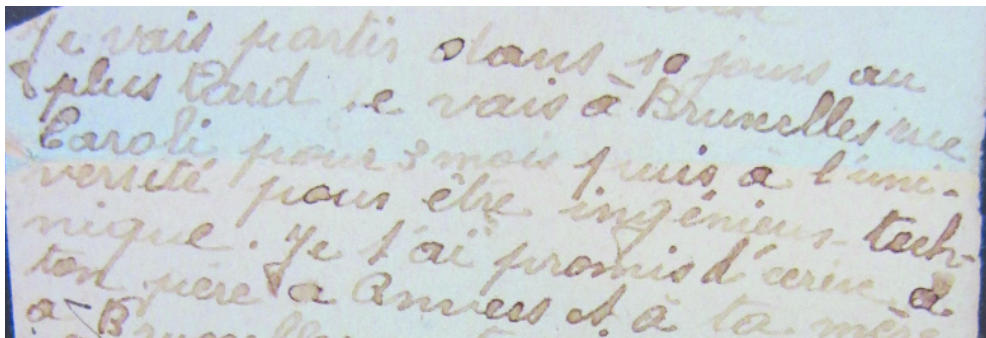 Je vais partir dans 10 jours au
plus tard je vais à Bruxelles rue
Caroli pour 3 mois puis à l'uni-
versité pour être ingénieur tech-
nique. Je t'ai promis d'écrire à
ton père à Anvers et à ta mère
à Bruxelles